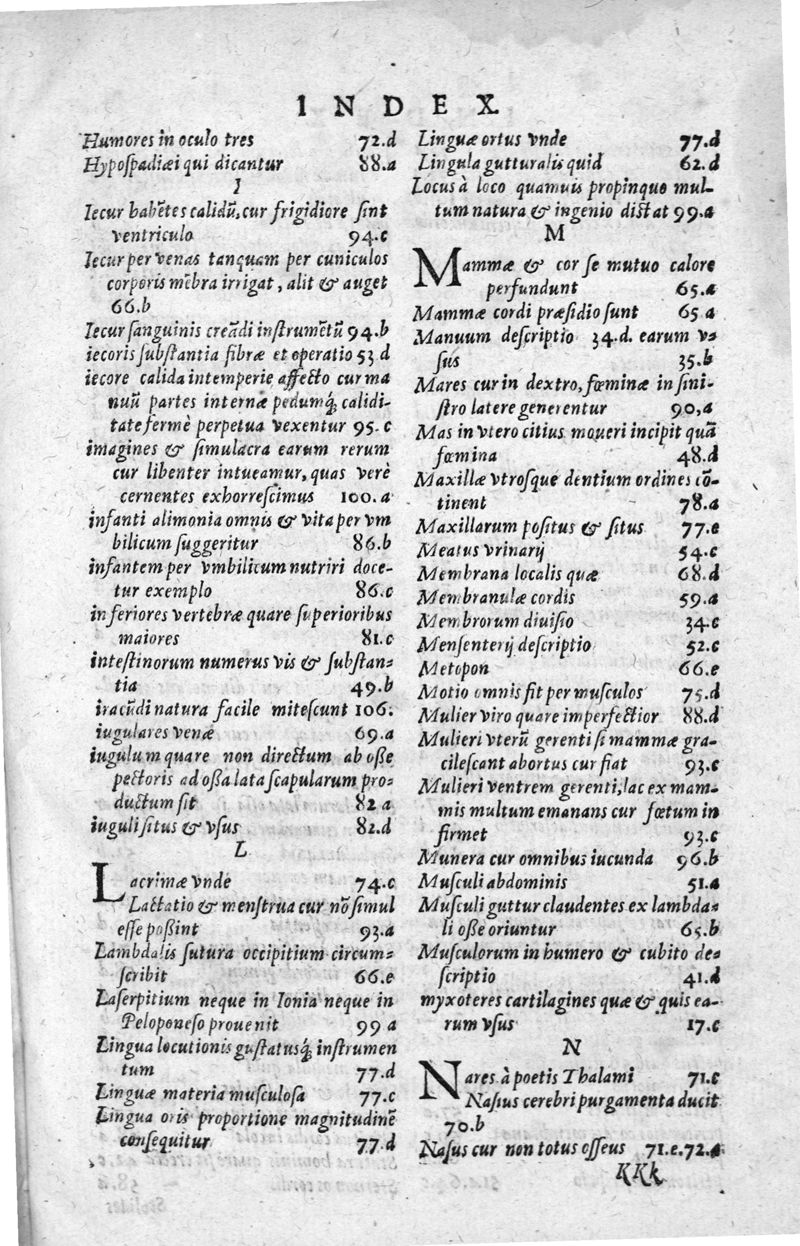 INDEX
Humores in oculo tres 72.d
Hypospadiæi qui dicantur 88.a
I
Iecur habētes calidū, cur frigidiore sint
ventriculo 94.c
Iecur per venas tanquam per cuniculos
corporis mēbra irrigat, alit & auget
66.b
Iecur sanguinis creādi instrumētū 94.b
iecoris substantia fibræ et operatio 53 d
iecore calida intemperie affecto cur ma
nuū partes internæ pedumq́; calidi-
tate fermè perpetua vexentur 95.c
imagines & simulacra earum rerum
cur libenter intueamur, quas verè
cernentes exhorrescimus 100.a
infanti alimonia omnis & vita per vm
bilicum suggeritur 86.b
infantem per vmbilicum nutriri doce-
tur exemplo 86.c
inferiores vertebræ quare superioribus
maiores 81.c
intestinorum numerus vis & substan-
tia 49.b
iracūdi natura facile mitescunt 106.
iugulares venæ 69.a
iugulum quare non directum ab osse
pectoris ad ossa lata scapularum pro-
ductum sit 82 a
iuguli situs & vsus 82.d
L
Lacrimæ vnde 74.c
Lactatio & menstrua cur nō simul
esse possint 93.a
Lambdalis sutura occipitium circum-
scribit 66.e
Laserpitium neque in Ionia neque in
Peloponeso prouenit 99 a
Lingua locutionis gustatusq́; instrumen
tum 77.d
Linguæ materia musculosa 77.c
Lingua oris proportione magnitudinē
consequitur 77.d
Linguæ ortus vnde 77.d
Lingula gutturalis quid 62.d
Locus à loco quamuis propinquo mul-
tum natura & ingenio distat 99.a
M
Mammæ & cor se mutuo calore
perfundunt 65.a
Mammæ cordi præsidio sunt 65 a
Manuum descriptio 34.d. earum v-
sus 35.b
Mares cur in dextro, fœminæ in sini-
stro latere generentur 90,a
Mas in vtero citius moueri incipit quā
fœmina 48.d
Maxillæ vtrosque dentium ordines cō-
tinent 78.a
Maxillarum positus & situs 77.e
Meatus vrinarij 54.c
Membrana localis quæ 68.d
Membranulæ cordis 59.a
Membrorum diuisio 34.c
Mensenterij descriptio 52.c
Metopon 66.e
Motio omnis fit per musculos 75.d
Mulier viro quare imperfectior 88.d
Mulieri vterū gerenti si mammæ gra-
cilescant abortus cur fiat 93.c
Mulieri ventrem gerenti, lac ex mam-
mis multum emanans cur fœtum in
firmet 93.c
Munera cur omnibus iucunda 96.b
Musculi abdominis 51.a
Musculi guttur claudentes ex lambda-
li osse oriuntur 65.b
Musculorum in humero & cubito de-
scriptio 41.d
myxoteres cartilagines quæ & quis ea-
rum vsus 17.c
N
Nares à poetis Thalami 71.c
Nasus cerebri purgamenta ducit
70.b
Nasus cur non totus osseus 71.e.72.a
KKk